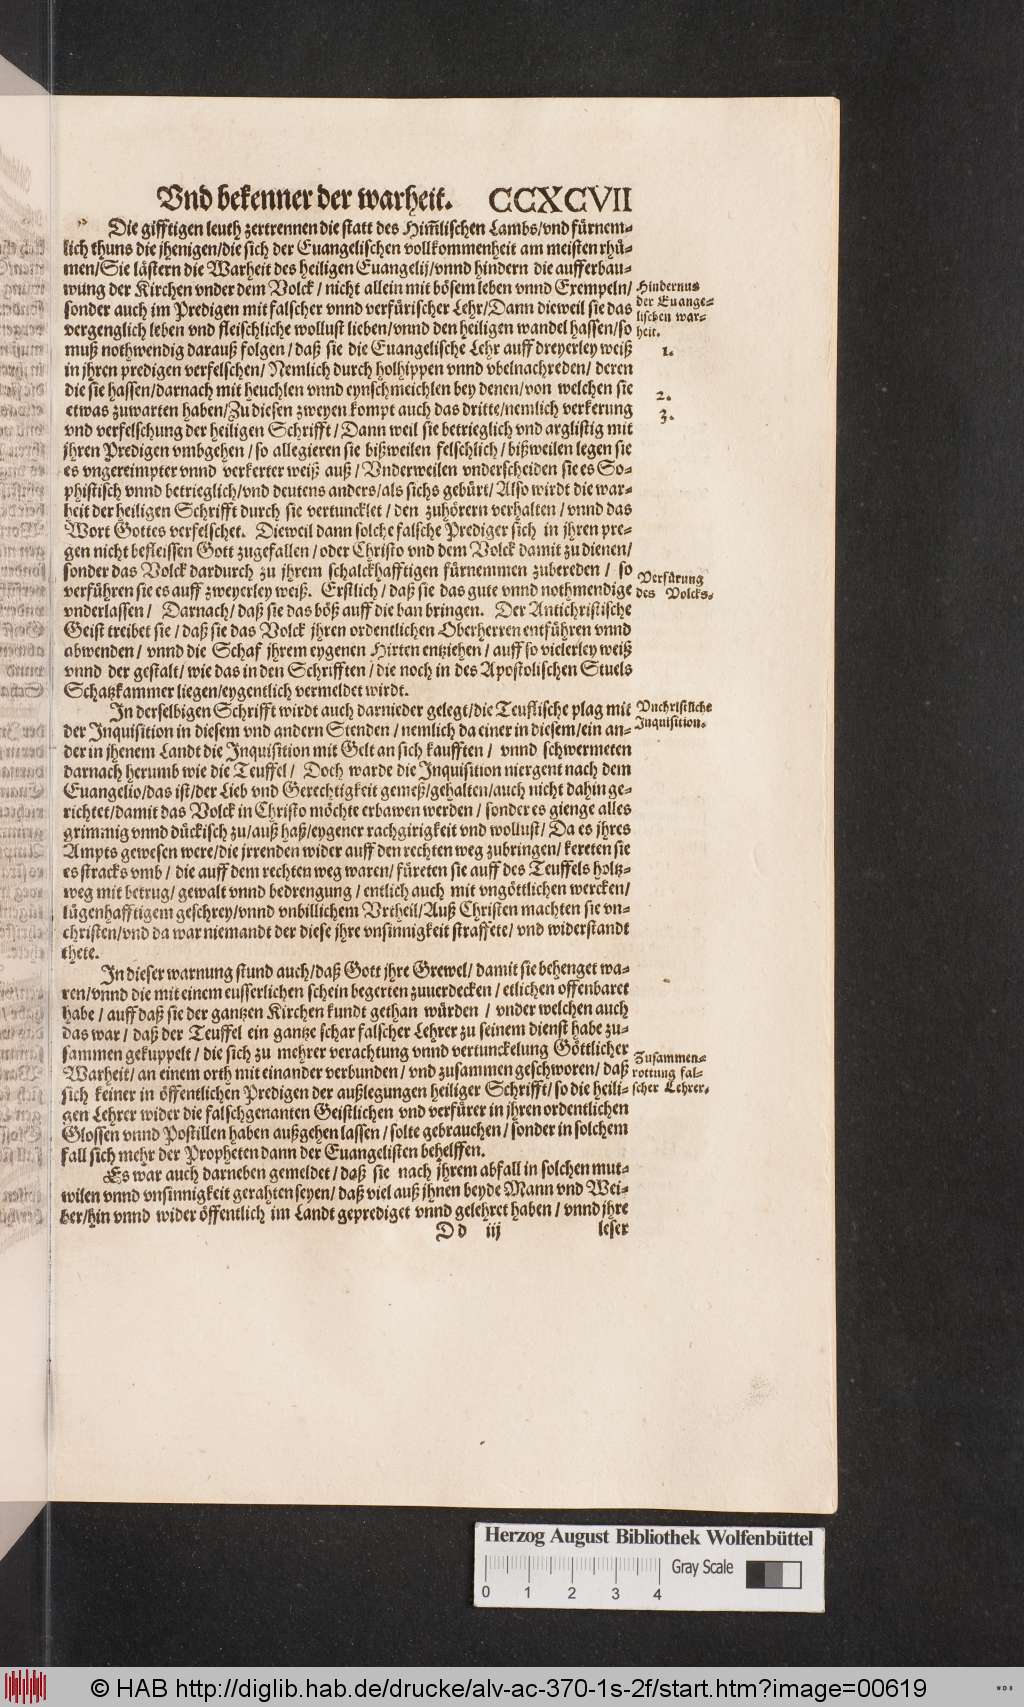 Vnd bekenner der warheit. CCXCVII
Die gifftigen leuth zertrennen die statt des Him̃lischen Lambs/vnd fürnem-
lich thuns die jhenigen/die sich der Euangelischen vollkommenheit am meisten rhü-
men/Sie lästern die Warheit des heiligen Euangelij/vnnd hindern die aufferbau-
wung der Kirchen vnder dem Volck/nicht allein mit bösem leben vnnd Exempeln/
sonder auch im Predigen mit falscher vnnd verfürischer Lehr/Dann dieweil sie das
vergenglich leben vnd fleischliche wollust lieben/vnnd den heiligen wandel hassen/so
muß nothwendig darauß folgen/daß sie die Euangelische Lehr auff dreyerley weiß
in jhren predigen verfelschen/Nemlich durch holhippen vnnd vbelnachreden/deren
die sie hassen/darnach mit heuchlen vnnd eynschmeichlen bey denen/von welchen sie
etwas zuwarten haben/Zu diesen zweyen kompt auch das dritte/nemlich verkerung
vnd verfelschung der heiligen Schrifft/Dann weil sie betrieglich vnd arglistig mit
jhren Predigen vmbgehen/so allegieren sie bißweilen felschlich/bißweilen legen sie
es vngereimpter vnnd verkerter weiß auß/Vnderweilen vnderscheiden sie es So-
phistisch vnnd betrieglich/vnd deutens anders/als sichs gebürt/Also wirdt die war-
heit der heiligen Schrifft durch sie vertuncklet/den zuhörern verhalten/vnnd das
Wort Gottes verfelschet. Dieweil dann solche falsche Prediger sich in jhren pre-
gen nicht befleissen Gott zugefallen/oder Christo vnd dem Volck damit zu dienen/
sonder das Volck dardurch zu jhrem schalckhafftigen fürnemmen zubereden/so
verführen sie es auff zweyerley weiß. Erstlich/daß sie das gute vnnd nothmendige
vnderlassen/Darnach/daß sie das böß auff die ban bringen. Der Antichristische
Geist treibet sie/daß sie das Volck jhren ordentlichen Oberherren entführen vnnd
abwenden/vnnd die Schaf jhrem eygenen Hirten entziehen/auff so vielerley weiß
vnnd der gestalt/wie das in den Schrifften/die noch in des Apostolischen Stuels
Schatzkammer liegen/eygentlich vermeldet wirdt.
In derselbigen Schrifft wirdt auch darnieder gelegt/die Teuflische plag mit
der Inquisition in diesem vnd andern Stenden/nemlich da einer in diesem/ein an-
der in jhenem Landt die Inquisition mit Gelt an sich kaufften/vnnd schwermeten
darnach herumb wie die Teuffel/Doch warde die Inquisition niergent nach dem
Euangelio/das ist/der Lieb vnd Gerechtigkeit gemeß/gehalten/auch nicht dahin ge-
richtet/damit das Volck in Christo möchte erbawen werden/sonder es gienge alles
grimmig vnnd dückisch zu/auß haß/eygener rachgirigkeit vnd wollust/Da es jhres
Ampts gewesen were/die jrrenden wider auff den rechten weg zubringen/kereten sie
es stracks vmb/die auff dem rechten weg waren/füreten sie auff des Teuffels holtz-
weg mit betrug/gewalt vnnd bedrengung/entlich auch mit vngöttlichen wercken/
lügenhafftigem geschrey/vnnd vnbillichem Vrtheil/Auß Christen machten sie vn-
christen/vnd da war niemandt der diese jhre vnsinnigkeit straffete/vnd widerstandt
thete.
In dieser warnung stund auch/daß Gott jhre Grewel/damit sie behenget wa-
ren/vnnd die mit einem eusserlichen schein begerten zuuerdecken/etlichen offenbaret
habe/auff daß sie der gantzen Kirchen kundt gethan würden/vnder welchen auch
das war/daß der Teuffel ein gantze schar falscher Lehrer zu seinem dienst habe zu-
sammen gekuppelt/die sich zu mehrer verachtung vnnd vertunckelung Göttlicher
Warheit/an einem orth mit einander verbunden/vnd zusammen geschworen/daß
sich keiner in öffentlichen Predigen der außlegungen heiliger Schrifft/so die heili-
gen Lehrer wider die falschgenanten Geistlichen vnd verfürer in jhren ordentlichen
Glossen vnnd Postillen haben außgehen lassen/solte gebrauchen/sonder in solchem
fall sich mehr der Propheten dann der Euangelisten behelffen.
Es war auch darneben gemeldet/daß sie nach jhrem abfall in solchen mut-
wilen vnnd vnsinnigkeit gerahten seyen/daß viel auß jhnen beyde Mann vnd Wei-
ber/hin vnnd wider öffentlich im Landt geprediget vnnd gelehret haben/vnnd jhre
D d iij leser
Hindernus
der Euange-
lischen war-
heit.
1.
2.
3.
Verfürung
des Volcks.
Vnchristliche
Inquisition.
Zusammen-
rottung fal-
scher Lehrer.
Herzog August Bibliothek Wolfenbüttel
Gray Scale
0 1 2 3 4
© HAB http://diglib.hab.de/drucke/alv-ac-370-1s-2f/start.htm?image=00619